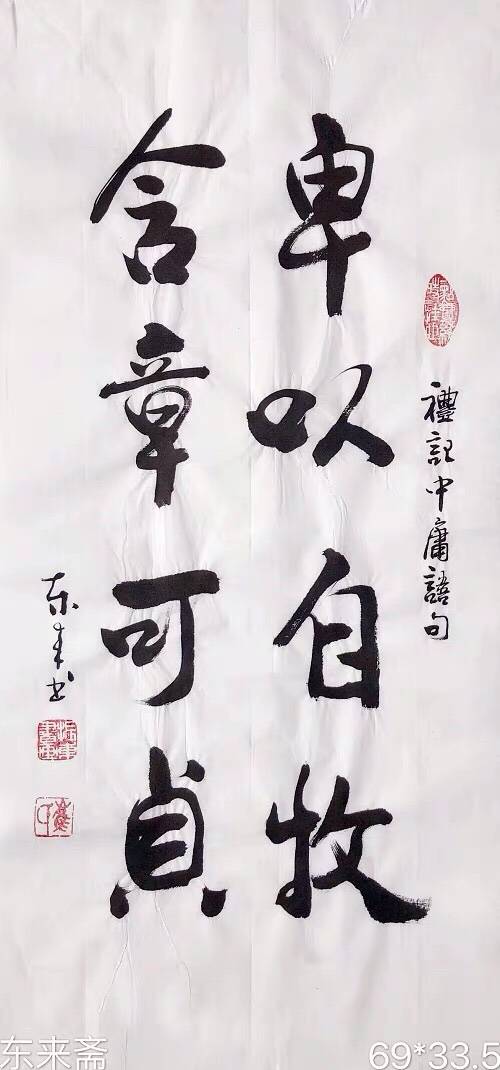 禮記中庸語句
卑以自牧
含章可貞
东来书
东来斋
69*33.5